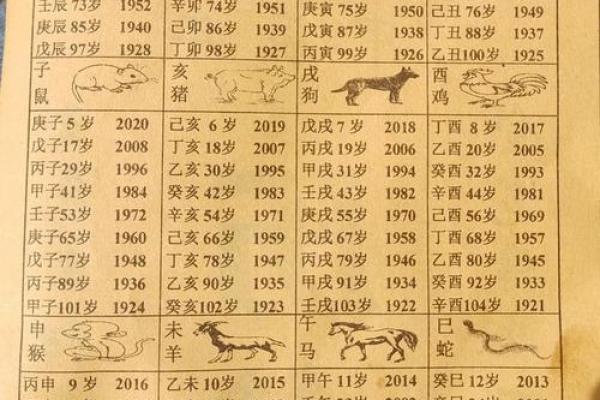 壬辰 73岁 1952 辛卯 74岁 1951 庚寅 75岁 1950 己丑 76岁 1949
庚辰 85岁 1940 己卯 86岁 1939 戊寅 87岁 1938 丁丑 88岁 1937
戊辰 97岁 1928 丁卯 98岁 1927 丙寅 99岁 1926 乙丑100岁 1925
子 亥 戌 酉
鼠 猪 狗 鸡
庚子 5 岁 2020 己亥 6 岁 2019 戊戌 7 岁 2018 丁酉 8 岁 2017
戊子17岁 2008 丁亥18岁 2007 丙戌19岁 2006 乙酉 20岁 2005
丙子29岁 1996 乙亥30岁 1995 甲戌31岁 1994 癸酉 32岁 1993
甲子41岁 1984 癸亥42岁 1983 壬戌43岁 1982 辛酉 44岁 1981
壬子53岁 1972 辛亥54岁 1971 庚戌55岁 1970 己酉 56岁 1969
庚子65岁 1960 己亥66岁 1959 戊戌67岁 1958 丁酉 68岁 1957
戊子77岁 1948 丁亥78岁 1947 丙戌79岁 1946 乙酉 80岁 1945
丙子89岁 1936 乙亥90岁 1935 甲戌91岁 1934 癸酉 92岁 1933
甲子101岁 1924 癸亥102岁 1923 壬戌103岁 1922 辛酉104岁 1921
申 未 午 巳
猴 羊 马 蛇
丙申 9 岁 2016 乙未 10岁 2015 甲午 11岁 2014 癸巳 12岁 2013